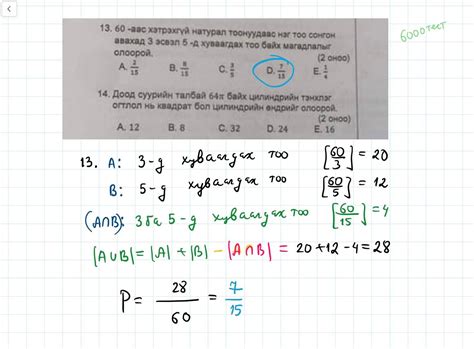 13. 60 -аас хэтрэхгүй натурал тоонуудаас нэг тоо сонгон
авахад 3 эсвэл 5 -д хуваагдах тоо байх магадлалыг
олоорой.
(2 оноо)
A. 2/15 B. 8/15 C. 3/5 D. 7/15 E. 1/4
14. Доод суурийн талбай 64π байх цилиндрийн тэнхлэг
огтлол нь квадрат бол цилиндрийн өндрийг олоорой.
(2 оноо)
A. 12 B. 8 C. 32 D. 24 E. 16
6000 тест
13. A: 3-д хуваагдах тоо [60/3] = 20
B: 5-д хуваагдах тоо [60/5] = 12
(A∩B): 3 ба 5-д хуваагдах тоо [60/15] = 4
|A∪B| = |A| + |B| - |A∩B| = 20+12-4=28
P = 28/60 = 7/15